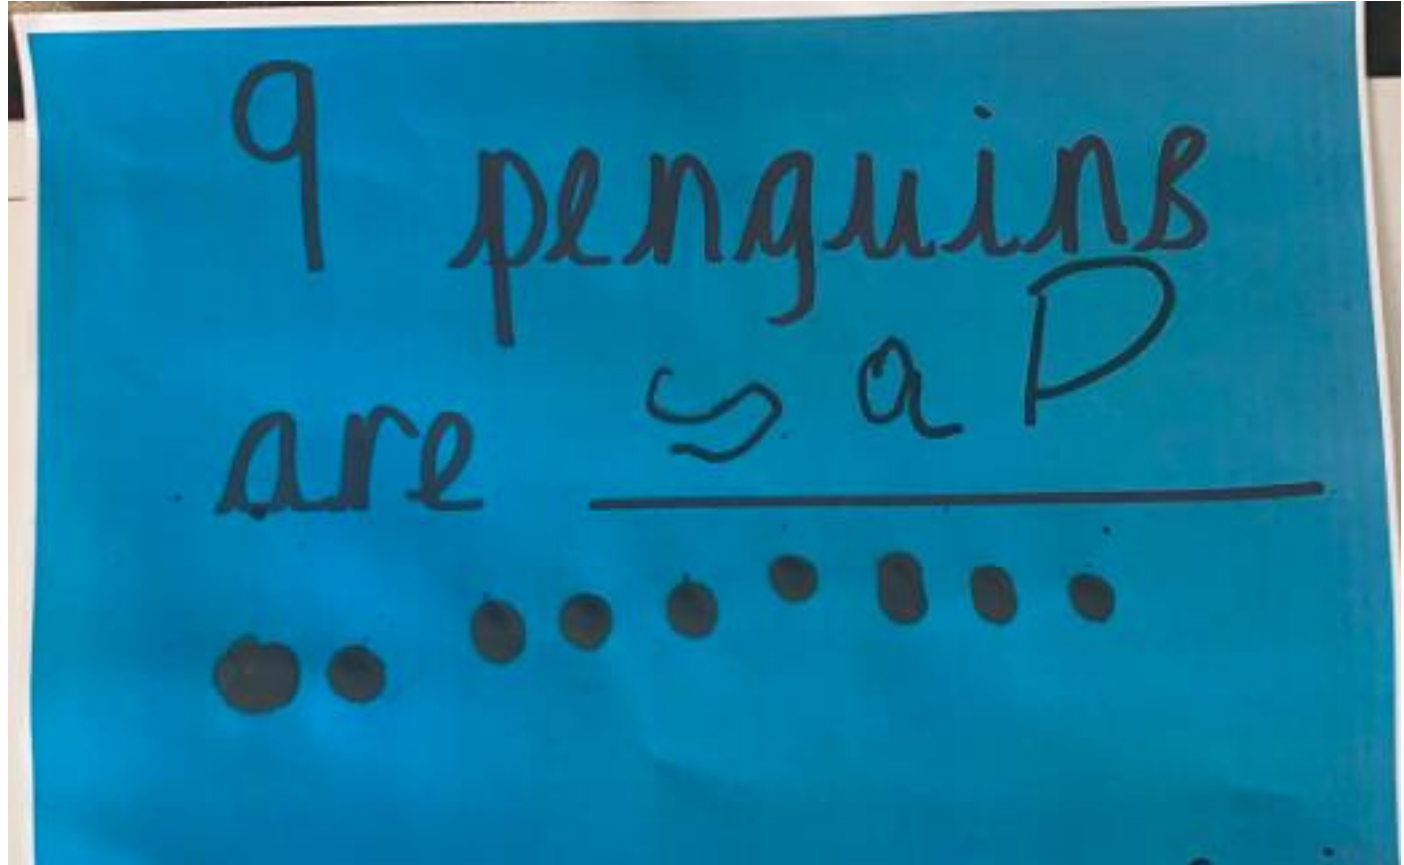 9 penguins
are s a D